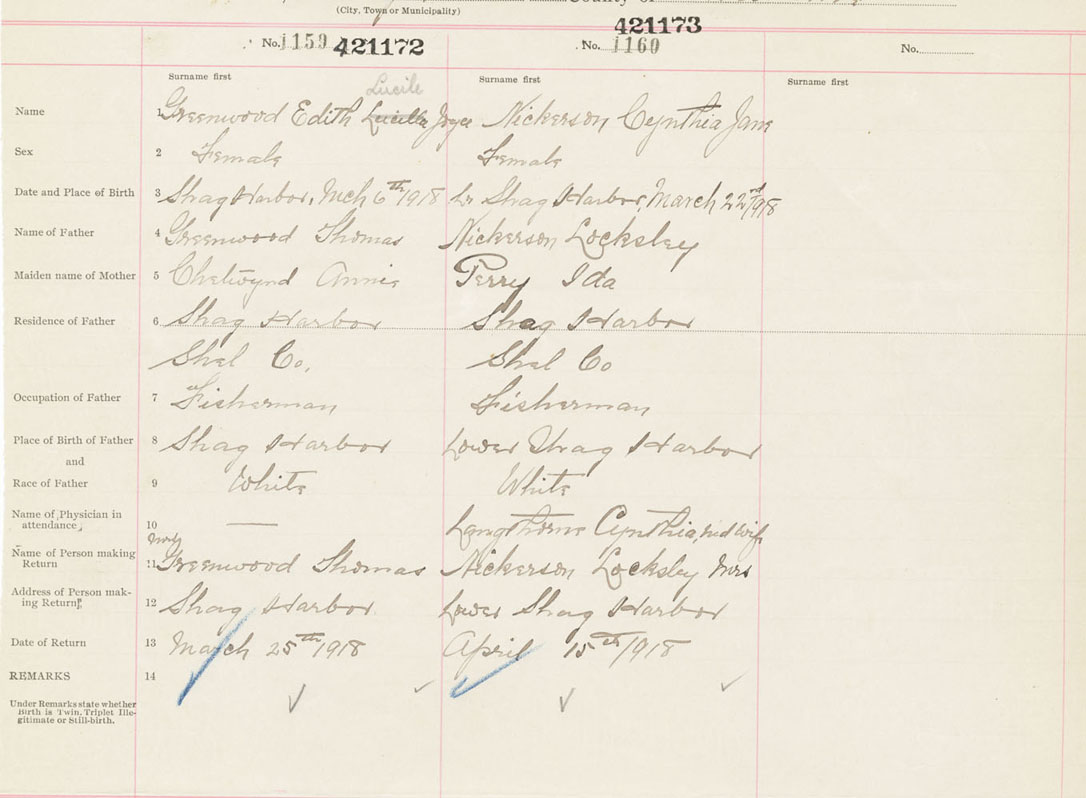 (City, Town or Municipality)
421173
No. 1159 421172 No. 1160 No.
Surname first Surname first Surname first
Lucile
Name 1 Greenwood Edith Lucilla Joyce Nickerson Cynthia Jane
Sex 2 Female Female
Date and Place of Birth 3 Shag Harbor, Mch 6th 1918 Lr Shag Harbor, March 22nd 1918
Name of Father 4 Greenwood Thomas Nickerson Locksley
Maiden name of Mother 5 Chetwynd Annie Perry Ida
Residence of Father 6 Shag Harbor Shag Harbor
Shel Co. Shel Co
Occupation of Father 7 Fisherman Fisherman
Place of Birth of Father 8 Shag Harbor Lower Shag Harbor
and
Race of Father 9 White White
Name of Physician in
attendance 10 — Langthorne Cynthia, midwife
Name of Person making
Return 11 Greenwood Thomas Nickerson Locksley Mrs
Address of Person mak-
ing Return 12 Shag Harbor Lower Shag Harbor
Date of Return 13 March 25th 1918 April 15th 1918
REMARKS 14
Under Remarks state whether
Birth is Twin, Triplet Ille-
gitimate or Still-birth.